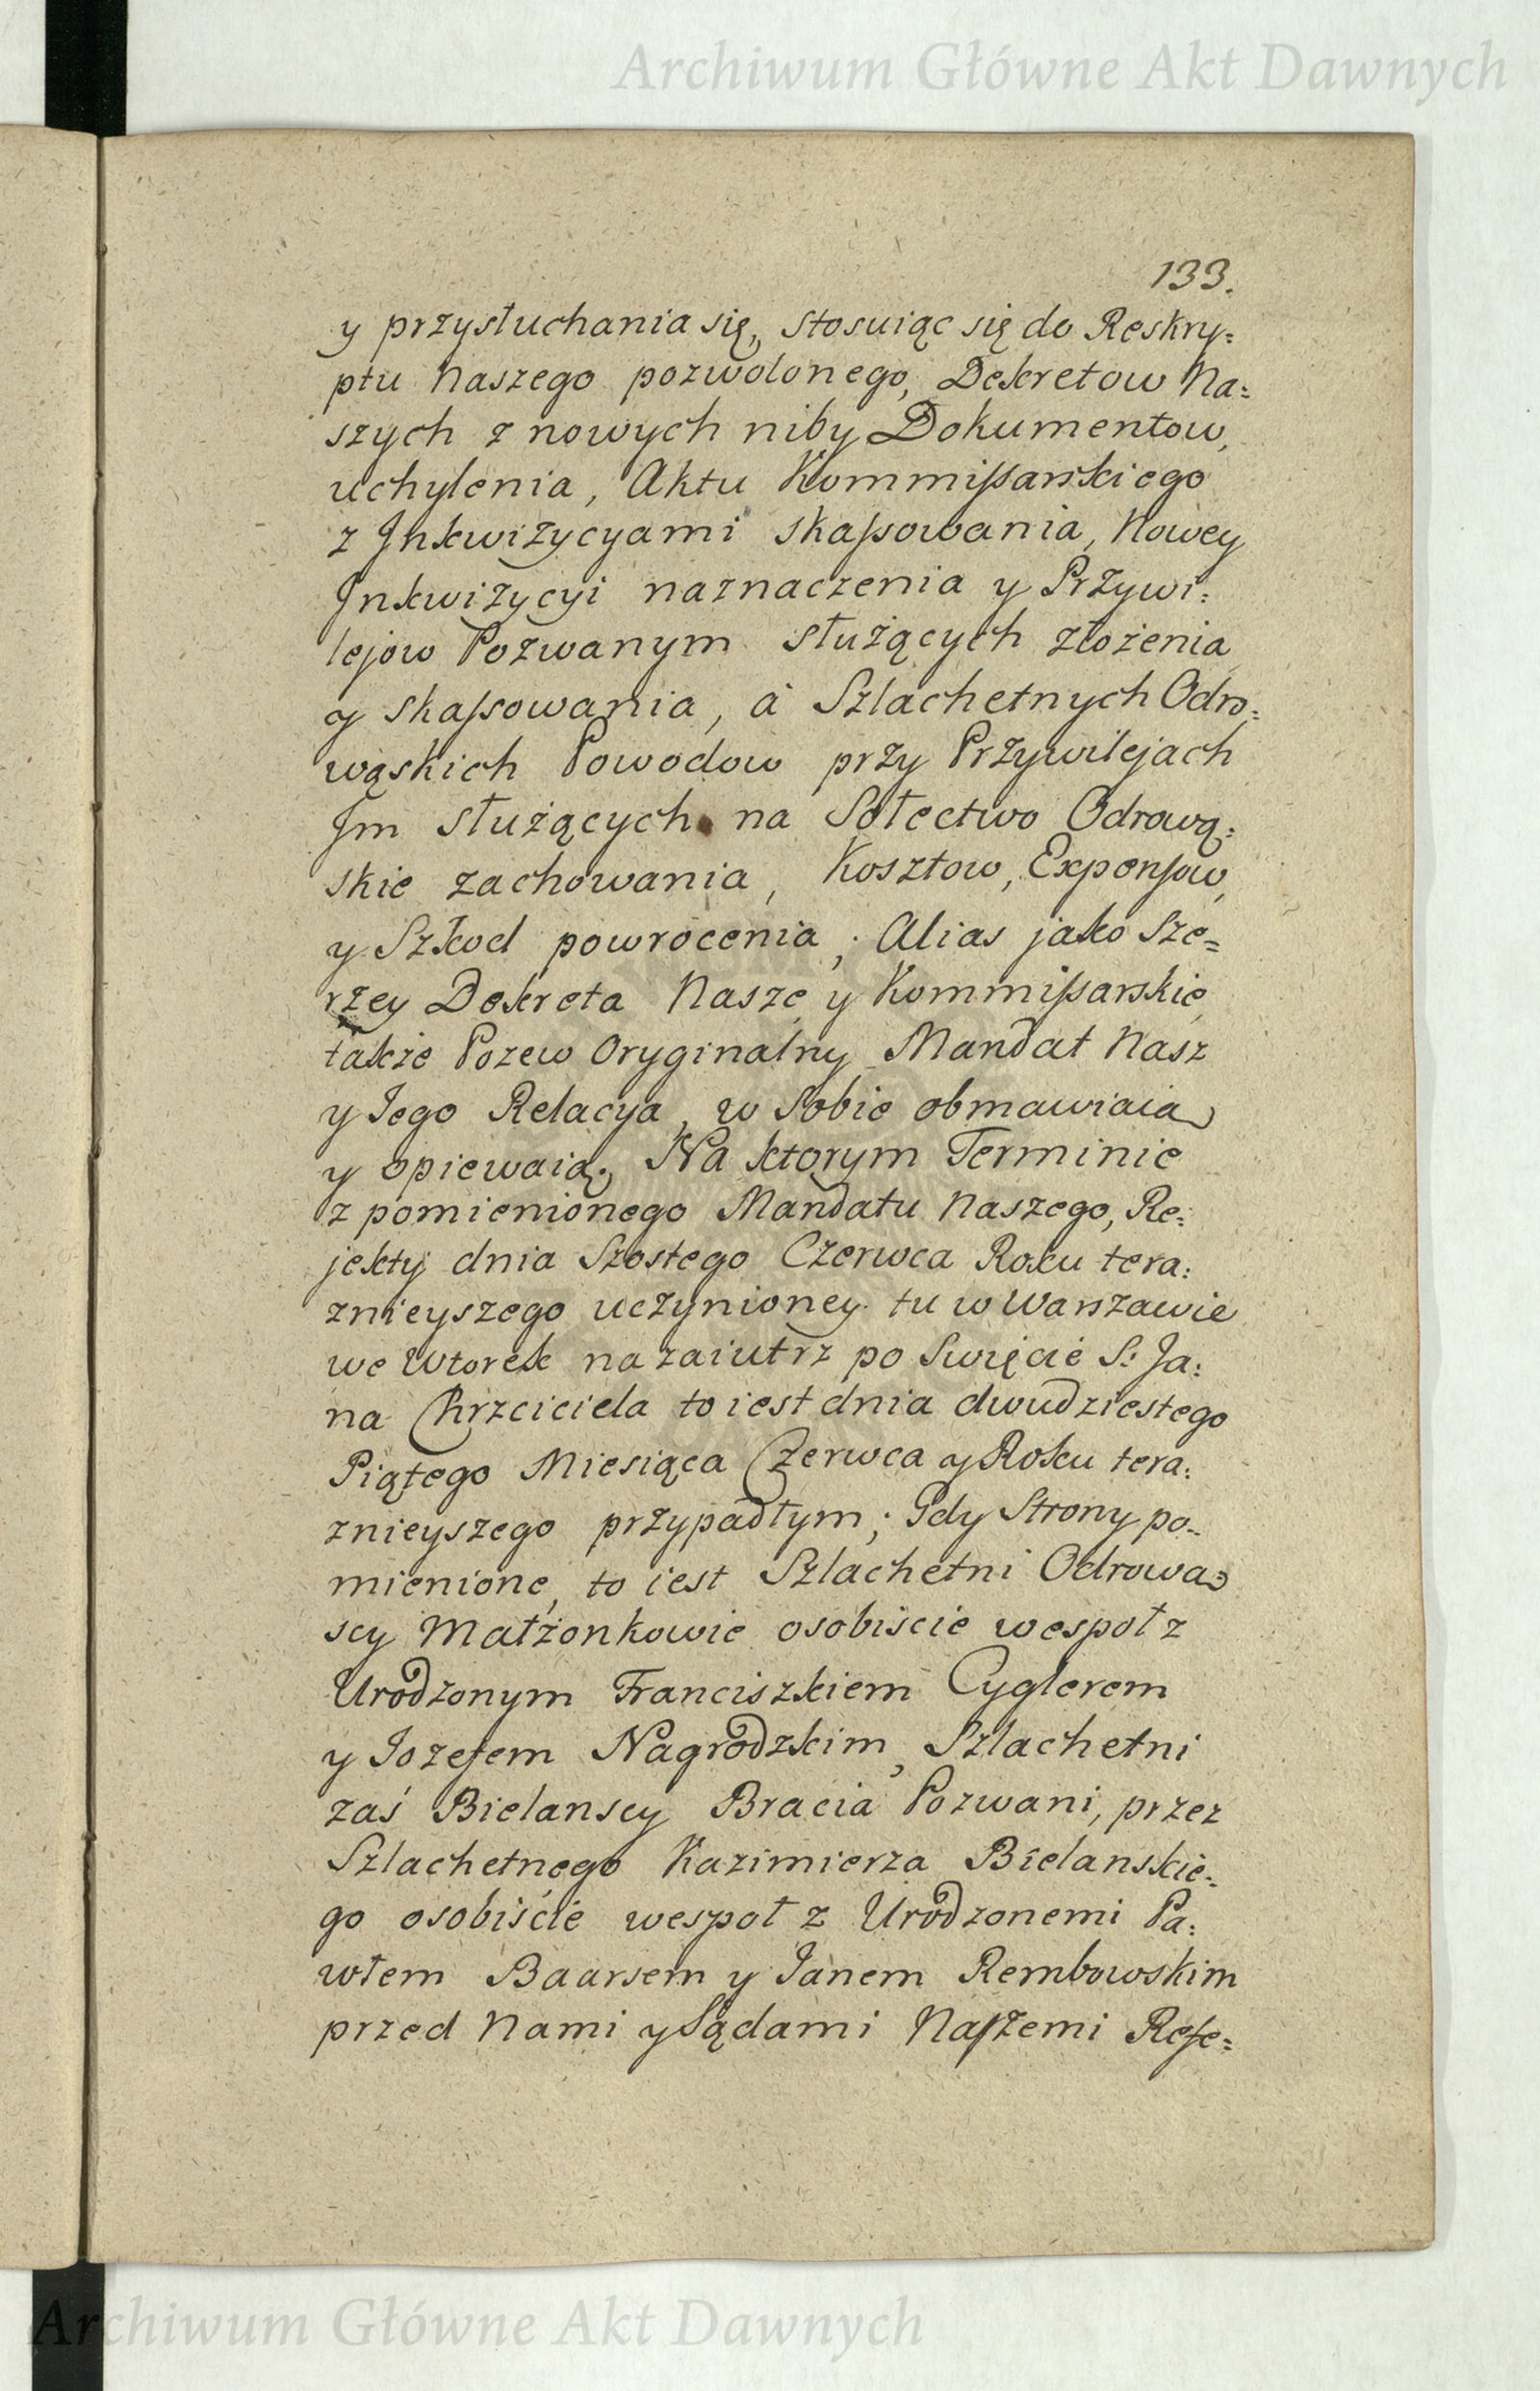 Archiwum Główne Akt Dawnych
133.
y przysłuchania się, stosuiąc się do Reskry=
ptu Naszego pozwolonego, Dekretow Na=
szych z nowych niby Dokumentow,
uchylenia, Aktu Kommißarskiego
z Inkwizycyami skaßowania, Nowey
Inkwizycyi naznaczenia y Przywi=
lejow Pozwanym służących złożenia
y skaßowania, à Szlachetnych Odro=
wąskich Powodow przy Przywilejach
Im służących na Sołectwo Odrową=
skie zachowania, Kosztow, Expensow,
y Szkod powrocenia; Alias jako sze=
rzey Dekreta Nasze y Kommißarskie,
także Pozew Oryginalny Mandat Nasz
y Iego Relacya, w sobie obmawiaią
y opiewaią; Na ktorym Terminie
z pomienionego Mandatu Naszego, Re=
jekty dnia Szostego Czerwca Roku tera=
znieyszego uczynioney tu w Warszawie
we Wtorek nazaiutrz po Swięcie S: Ja=
na Chrzciciela to iest dnia dwudziestego
Piątego Miesiąca Czerwca y Roku tera=
znieyszego przypadłym; Gdy Strony po=
mienione, to iest Szlachetni Odrową
scy Małżonkowie osobiście wespoł z
Urodzonym Franciszkiem Cyglerem
y Iozefem Nagrodzkim, Szlachetni
zaś Bielanscy Bracia Pozwani, przez
Szlachetnego Kazimierza Bielanskie=
go osobiście wespoł z Urodzonemi Pa=
włem Baarsem y Ianem Rembowskim
przed Nami y Sądami Naszemi Refe=
Archiwum Główne Akt Dawnych